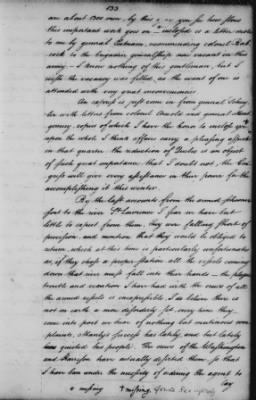 133
are about 1300 men. by this you see how slow
this important work goes on — inclosed is a letter wrote
to me by general Putnam, recommending colonel Bab
cock to the brigadier generalship now vacant in this
army — I know nothing of this gentleman, but I
wish the vacancy was filled, as the want of one is
attended with very great inconveniences.
An express is just come in from general Schuy
ler with letters from colonel Arnold and general Mont
gomery, copies of which I have the honor to inclose you
upon the whole I think affairs carry a pleasing aspect
in that quarter the reduction of Quebec is an object
of such great importance that I doubt not, the Con
gress will give every assistance in their power for the
accomplishing it this winter.
By the last accounts from the armed schooners
sent to the river St Lawrence I fear we have but
little to expect from them, they were falling short of
provision, and mention that they would be obliged to
return, which at this time is particularly unfortunate
as, if they chose a proper station all the vessels coming
down that river must fall into their hands — the plague
trouble and vexation I have had with the crews of all
the armed vessels is inexpressible. I do believe there is
not on earth a more disorderly set. every time they
come into port we hear of nothing but mutinous com
plaints, Manly's success has lately and but lately
quieted his people. The crews of the Washington
and Harrison have actually deserted them, so that I
have been under the necessity of ordering the agent to
lay